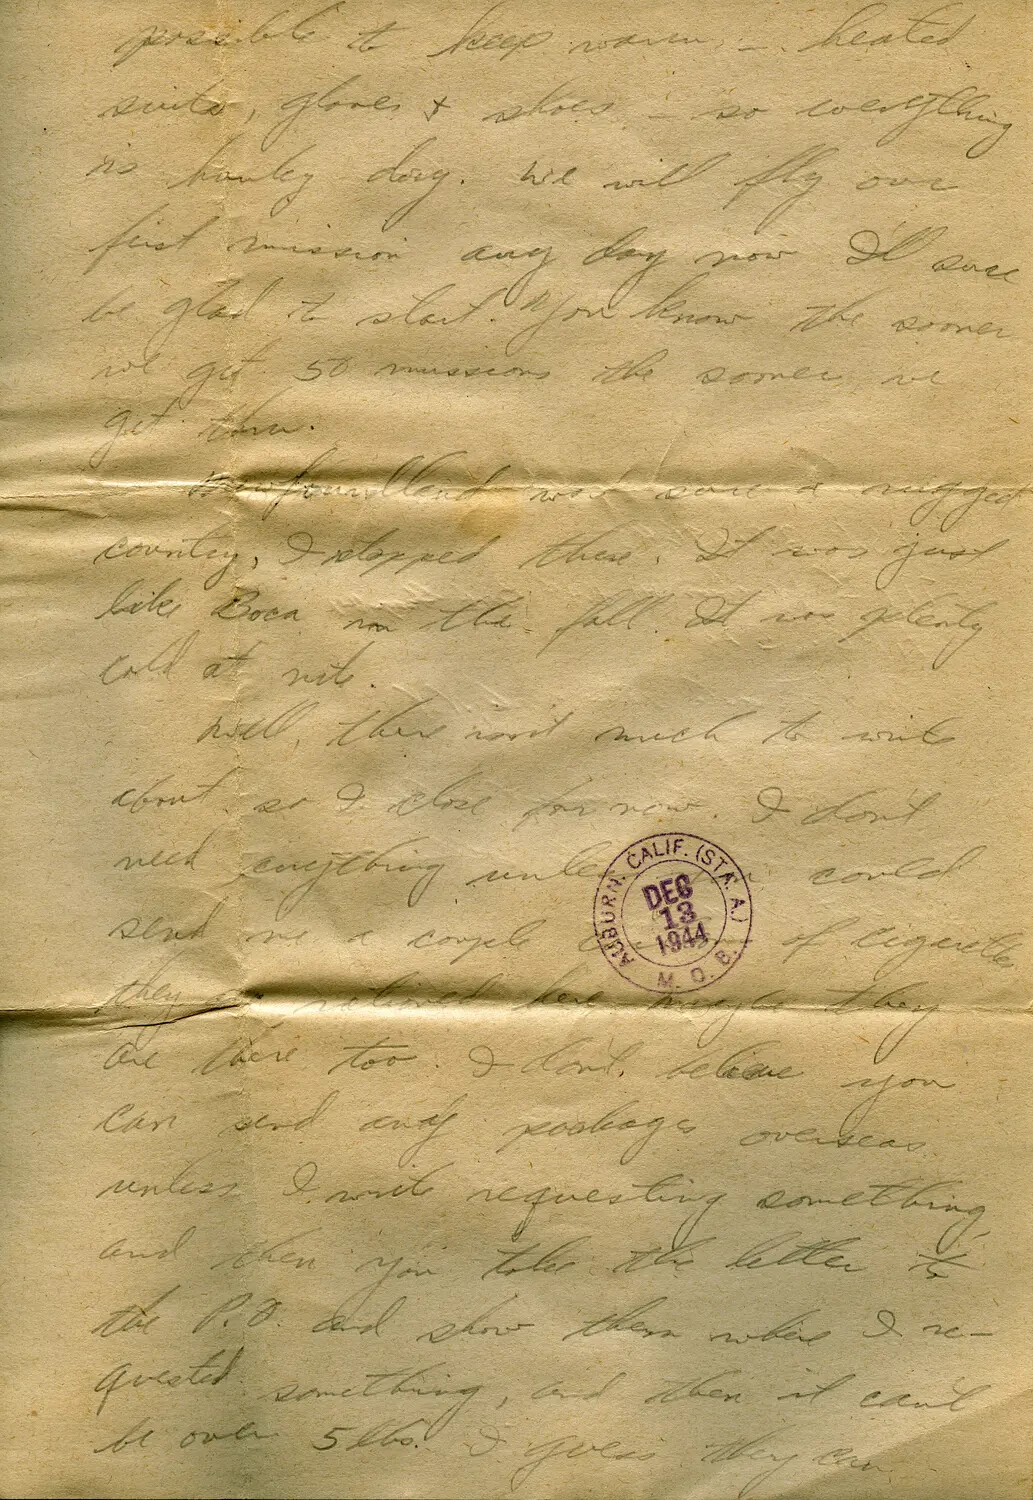 possible to keep warm, – heated
suits, gloves & shoes – so everything
is hunky dory. We will fly our
first mission any day now I'll sure
be glad to start. You know the sooner
we get 50 missions the sooner we
get thru.
Newfoundland was sure a rugged
country, I stopped there. It was just
like Boca in the fall. It was plenty
cold at nite.
Well, there isn't much to write
about so I close for now. I don't
need anything unless you could
send me a couple of cigarettes
they rationed here maybe they
are there too. I don't believe you
can send any packages overseas
unless I write requesting something,
and then you take the letter to
the P.O. and show them where I re-
quested something, and then it can't
be over 5 lbs. I guess they can
AUBURN, CALIF. (STA. A.)
DEC
13
1944
M. O. B.